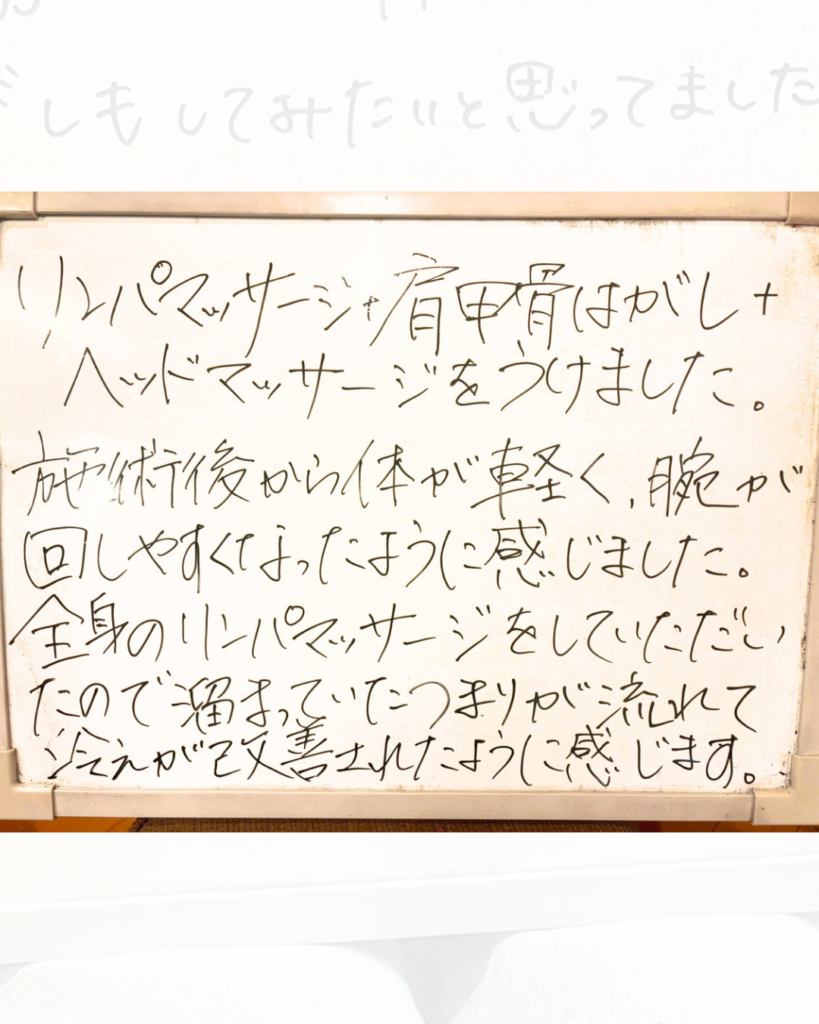 しもしてみたいと思ってました
リンパマッサージ+肩甲骨はがし+
ヘッドマッサージをうけました。
施術後から体が軽く、腕が
回しやすくなったように感じました。
全身のリンパマッサージをしていただい
たので溜まっていたつまりが流れて
冷えが改善されたように感じます。